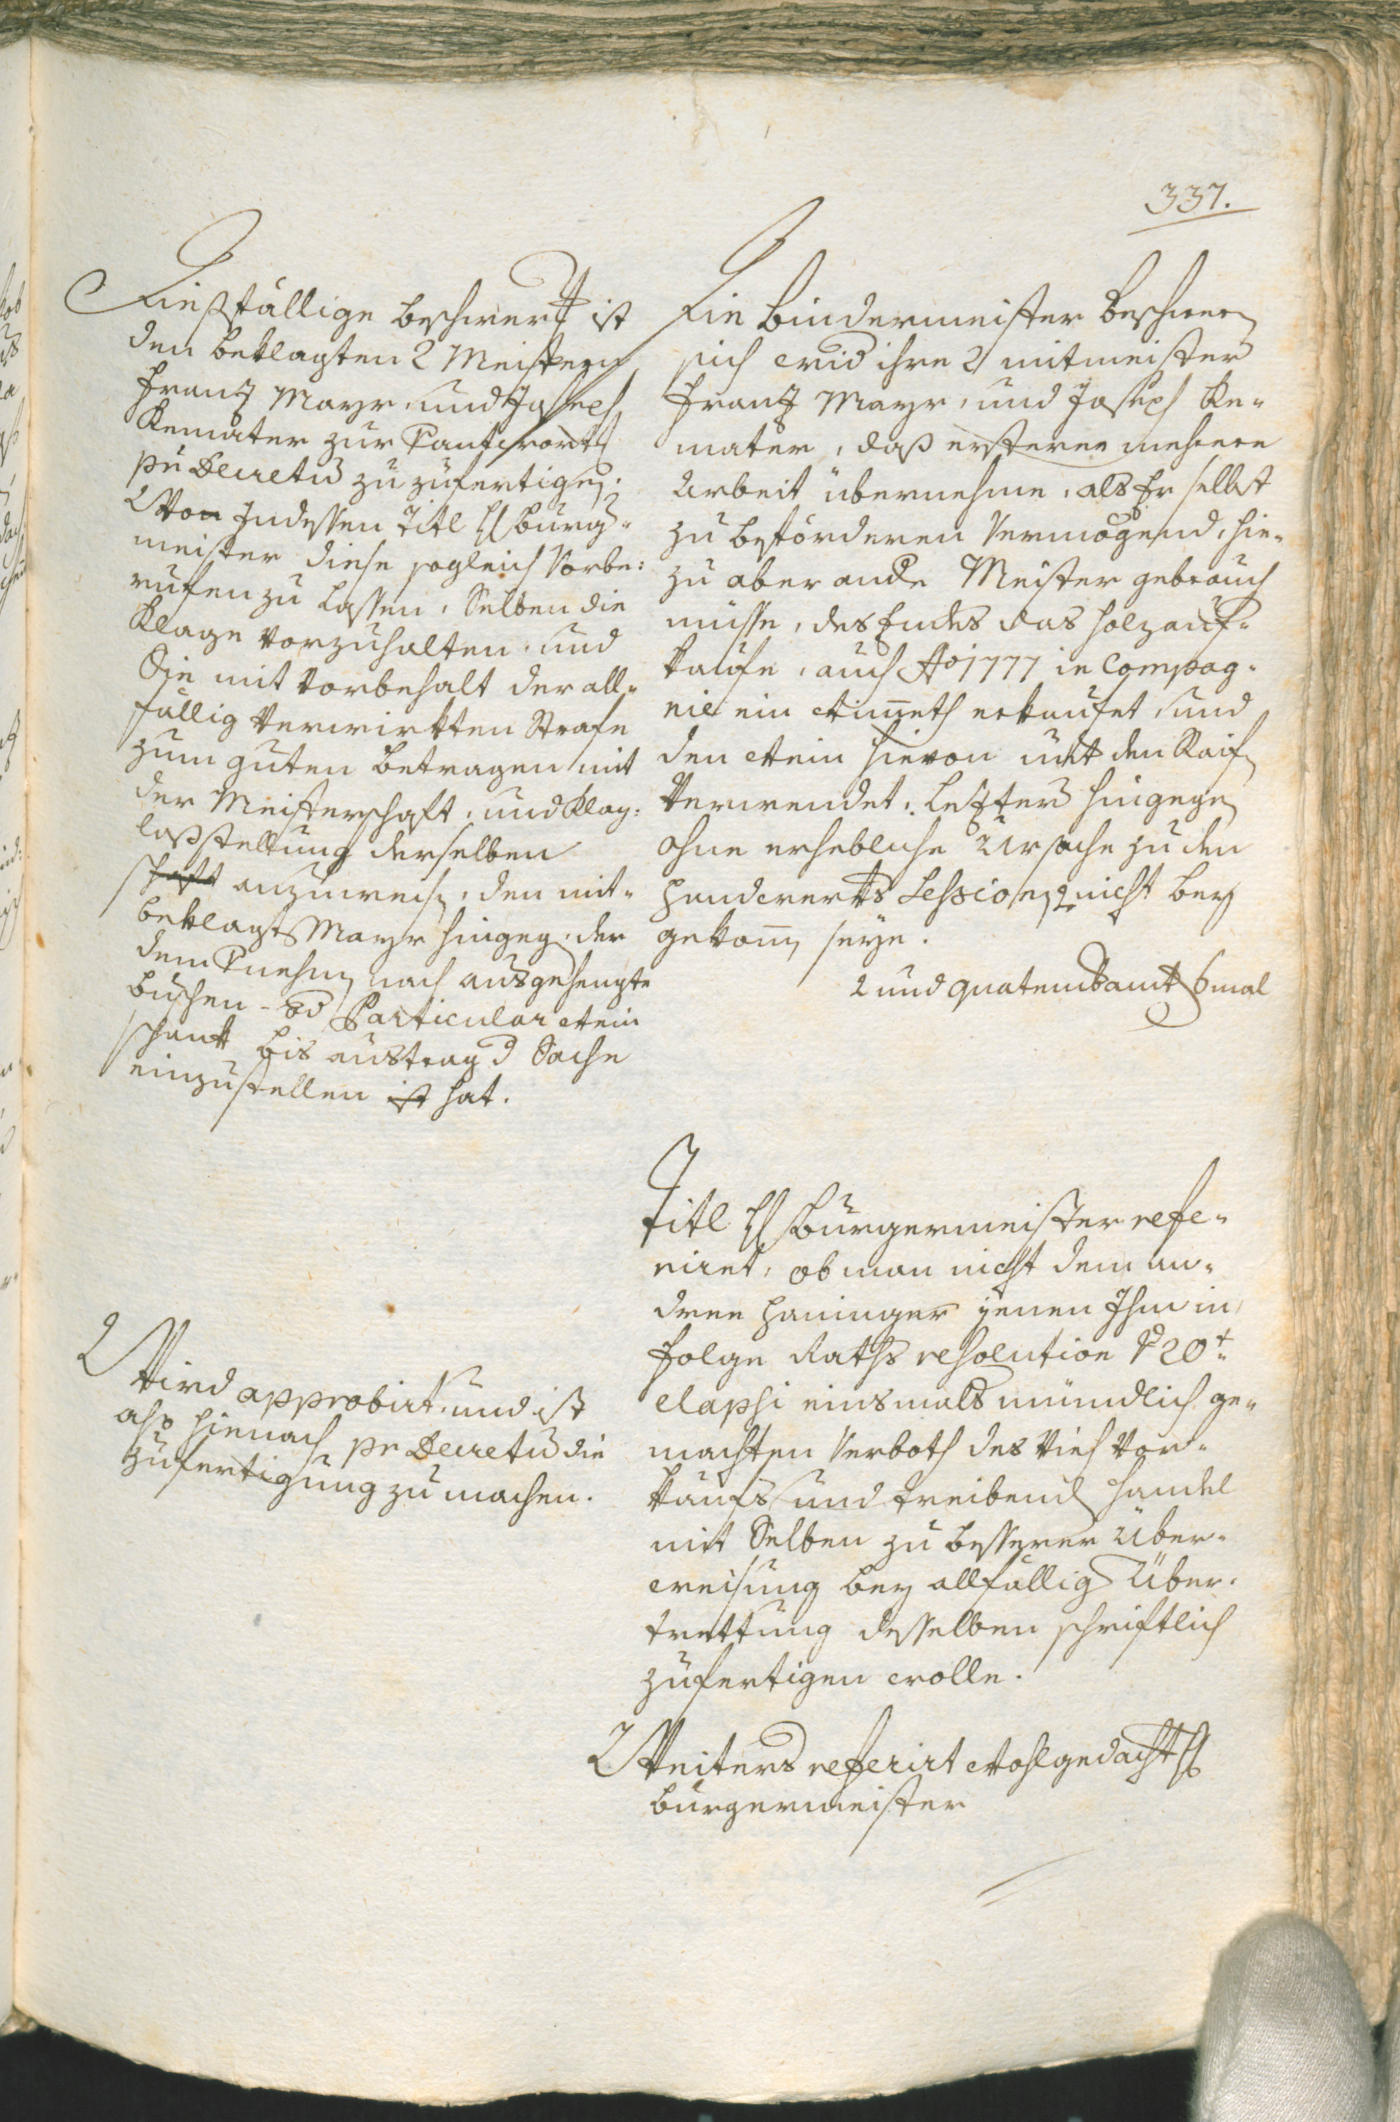 337.
Dießfällige beschwert ist
den beklagten 2 Meistern
Franz Mayr, und Joseph
Kemater zur Verantwortt
per Decretum zuzufertigen.
Von Indessen Titl H burger¬
meister diese sogleich Vorbe¬
rufen zu lassen, Selben die
Klage vorzuhalten, und
Sie mit Vorbehalt der all¬
fällig verwirkten Strafe
zum guten betragen mit
der Meisterschaft, und Klag¬
losstellung derselben
anzuweisen, den mit¬
beklagten Mayr hingegen, der
dem Vernehmen nach ausgehengte
buschen- od Particular Wein
schank bis austrag der Sache
einzustellen ist hat.
Wird approbirt, und ist
also hienach per Decretum die
Zufertigung zu machen.
Die Bindermeister beschweren
sich wider ihre 2 mitmeister
Franz Mayr, und Joseph Ke¬
mater, daß ersterer mehrere
Arbeit übernehme, als Er selbst
zu beförderen Vermögend, hie¬
zu aber andere Meister gebrauchen
müsse, des Endes das Holz auf¬
kaufe, auch Ao 1777 in Compag¬
nie ein Wimeth erkaufet, und
den Wein hievon mit den Raif
Verwendet. Letzterer hingegen
ohne erhebliche Ursache zu den
Handwerks Session nicht bey
gekommen seye.
2 und quatembamt 6 mal
Titl H Burgermeister refe¬
riret, ob man nicht dem An¬
dree Haninger jenen Ihm in
Folge Raths resolution de 20t
elapsi einsmals mündlich ge¬
machten Verboth des Vieh Vor¬
kaufs und treibenden Handel
mit Selben zu besserer Über¬
weisung bey allfällig Über¬
trettung desselben schriftlich
zufertigen wolle.
Weiters referirt Wohlgedacht H
burgermeister